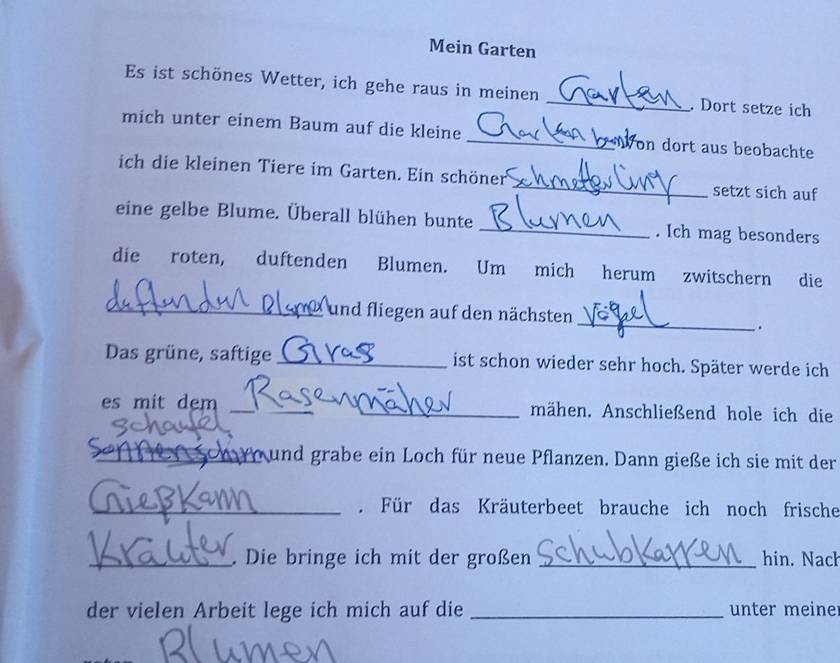 Mein Garten
Es ist schönes Wetter, ich gehe raus in meinen Garten. Dort setze ich
mich unter einem Baum auf die kleine on dort aus beobachte
ich die kleinen Tiere im Garten. Ein schöner Schmetterling setzt sich auf
eine gelbe Blume. Überall blühen bunte Blumen. Ich mag besonders
die roten, duftenden Blumen. Um mich herum zwitschern die
Blumen und fliegen auf den nächsten Vögel.
Das grüne, saftige Gras ist schon wieder sehr hoch. Später werde ich
es mit dem Rasenmäher mähen. Anschließend hole ich die
schaufel
Sonnenschirm und grabe ein Loch für neue Pflanzen. Dann gieße ich sie mit der
Gießkann. Für das Kräuterbeet brauche ich noch frische
Kräuter. Die bringe ich mit der großen Schubkarren hin. Nach
der vielen Arbeit lege ich mich auf die unter meine
Blumen